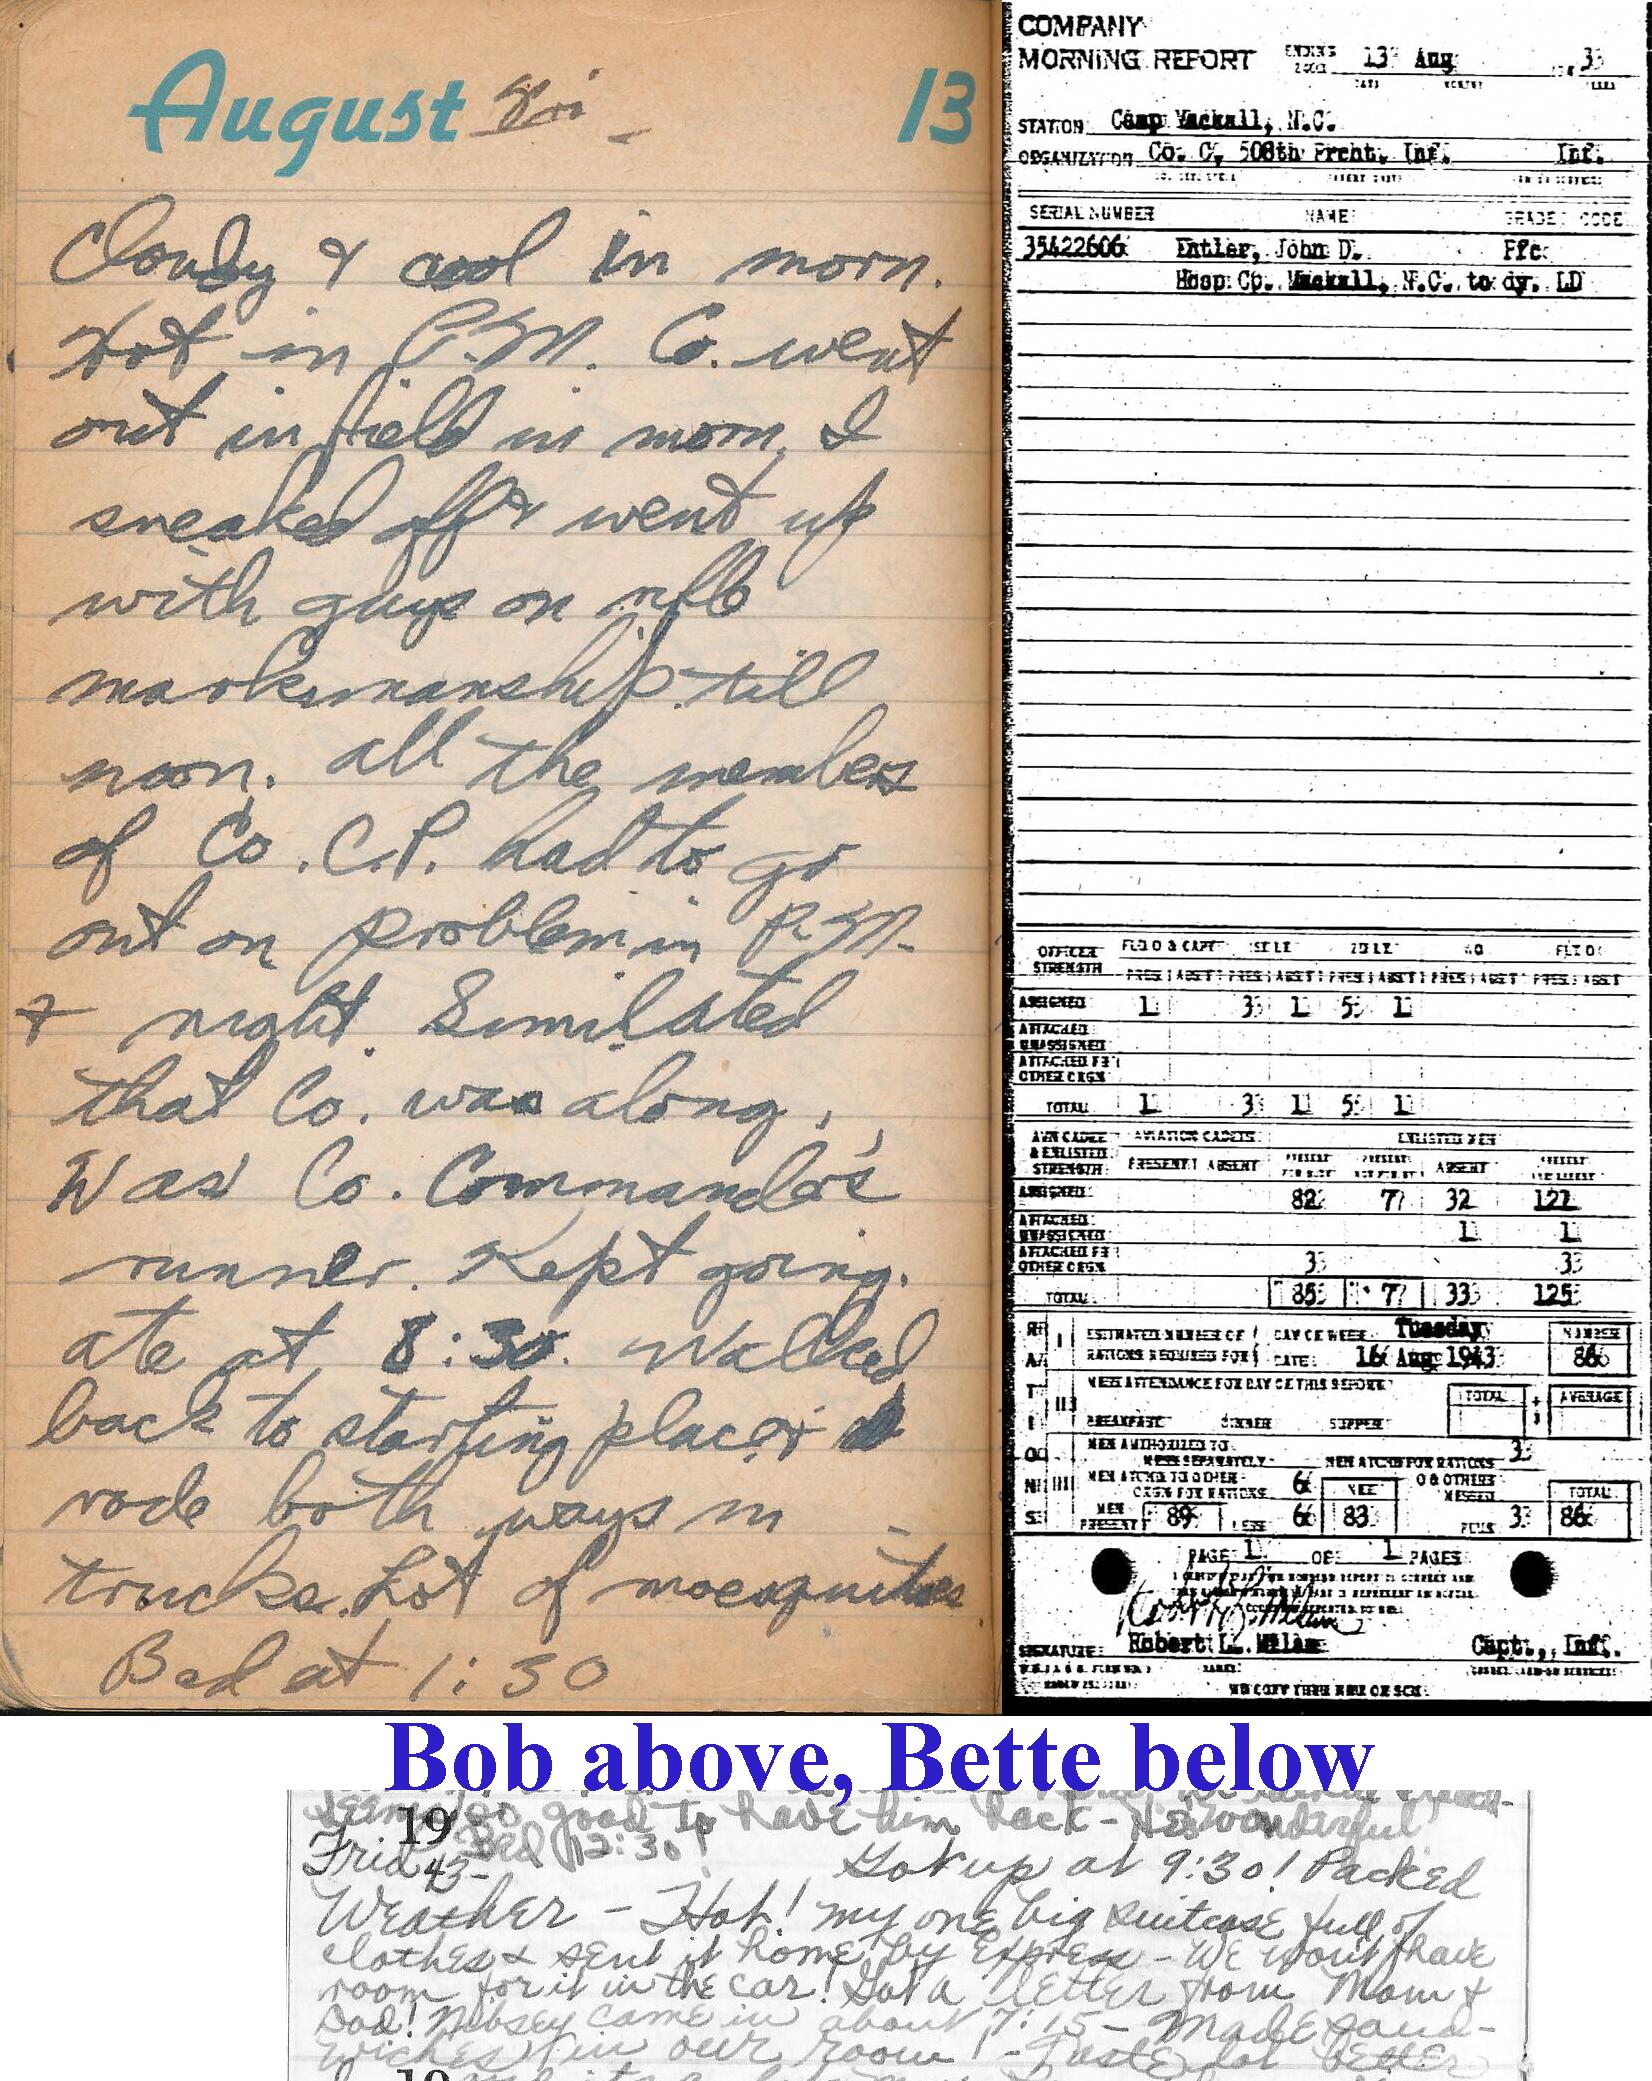 August Fri 13
Cloudy & cool in morn.
Hot in P.M. Co. went
out in field in morn. I
sneaked off & went up
with guys on rifle
marksmanship till
noon. All the members
of Co. C.P. had to go
out on problem in P.M.
& night. Similated
that Co. was along.
Was Co. Commander's
runner. Kept going.
Ate at 8:30. Walked
back to starting place &
rode both ways in
trucks. Lot of mosquitoes
Bed at 1:30
COMPANY
MORNING REPORT ENDING 13 Aug
DATE MONTH YEAR
STATION Camp Mackall, N.C.
ORGANIZATION Co. C, 508th Prcht. Inf. Inf.
SERIAL NUMBER NAME GRADE CODE
35422606 Entler, John D. Pfc
Hosp Cp. Mackall, N.C. to dy. LD
OFFICER STRENGTH FLD O & CAPT 1ST LT 2D LT WO FLT O
PRES ABST PRES ABST PRES ABST PRES ABST PRES ABST
ASSIGNED 1 3 1 5 1
ATTACHED
UNASSIGNED
ATTACHED FR
OTHER ORGN
TOTAL 1 3 1 5 1
AVN CADET & ENLISTED STRENGTH AVIATION CADETS ENLISTED MEN
PRESENT ABSENT PRESENT FOR DUTY PRESENT NOT FOR DY ABSENT PRESENT
ASSIGNED 82 7 32 121
ATTACHED
UNASSIGNED 1 1
ATTACHED FR
OTHER ORGN 3 3
TOTAL 85 7 33 125
RATIONS
I ESTIMATED NUMBER OF DAY OF WEEK Tuesday NUMBER
RATIONS REQUIRED FOR DATE 16 Aug 1943 86
II MESS ATTENDANCE FOR DAY OF THIS REPORT TOTAL AVERAGE
BREAKFAST DINNER SUPPER
MEN AUTHORIZED TO
MESS SEPARATELY MEN ATCHD FOR RATIONS 3
III MEN ATCHD TO OTHER
ORGN FOR RATIONS 6 NET O & OTHERS MESSED TOTAL
MEN PRESENT 89 LESS 6 83 PLUS 3 86
PAGE 1 OF 1 PAGES
SIGNATURE Robert L. Milam Capt., Inf.
Bob above, Bette below
good to have him back - He's wonderful
19 Bed 12:30!
Frid 43- Got up at 9:30! Packed
Weather - Hot! my one big suitcase full of
clothes & sent it home by Express - We won't have
room for it in the car! Got a letter from Mom &
Dad! Nibsey came in about 7:15 - Made sand-
wiches in our room! - Taste lot better
19